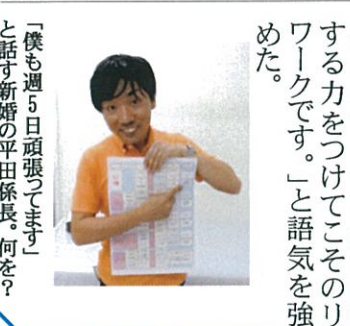 する力をつけてこそのリ
ワークです。」と語気を強
めた。
「僕も週５日頑張ってます」
と話す新婚の平田係長。何を？